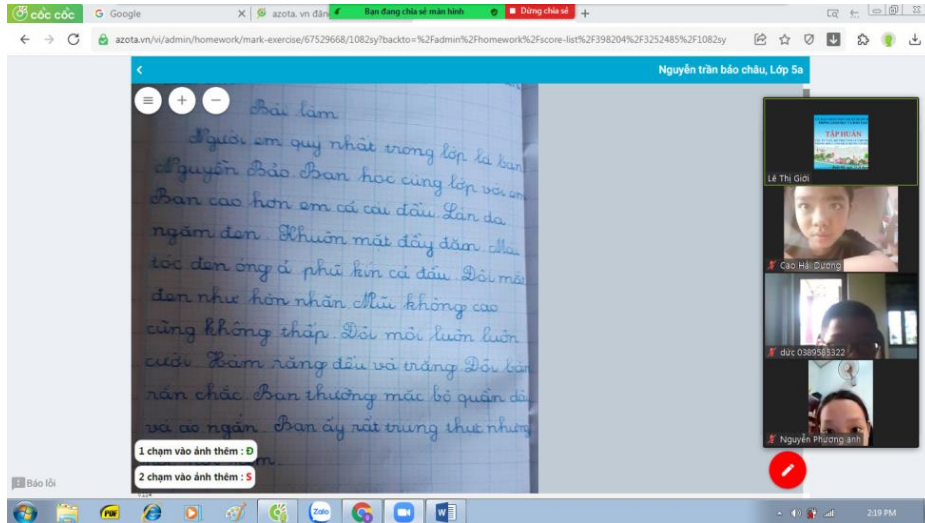 cốc cốc
Google
azota. vn đăn
Bạn đang chia sẻ màn hình
Dừng chia sẻ
azota.vn/vi/admin/homework/mark-exercise/67529668/1082sy?backto=%2Fadmin%2Fhomework%2Fscore-list%2F398204%2F3252485%2F1082sy
Nguyễn trần bảo châu, Lớp 5a
Bài làm
Người em quý nhất trong lớp là bạn
Nguyễn Bảo. Bạn học cùng lớp với em
Bạn cao hơn em cả cái đầu. Làn da
ngăm đen. Khuôn mặt đầy đặn. Mái
tóc đen óng ả phủ kín cả đầu. Đôi mắt
đen như hòn nhãn Mũi không cao
cũng không thấp. Đôi môi luôn luôn
cười. Hàm răng đều và trắng. Đôi bàn
rắn chắc. Bạn thường mặc bộ quần dà
và áo ngắn. Bạn ấy rất trung thực nhưng
1 chạm vào ảnh thêm : Đ
2 chạm vào ảnh thêm : S
TẬP HUẤN
Lê Thị Giới
Cao Hải Dương
đức 0389585322
Nguyễn Phương anh
Báo lỗi
PDF
Zalo
2:19 PM